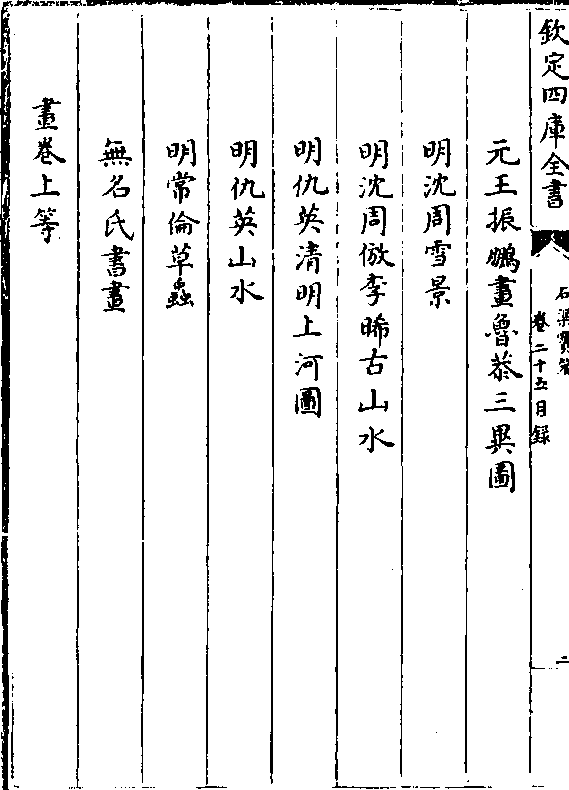 欽定四庫全書
石渠寶笈
卷二十五目録
二
元王振鵬畫魯恭三異圖
明沈周雪景
明沈周倣李晞古山水
明仇英清明上河圖
明仇英山水
明常倫草蟲
無名氏書畫
畫卷上等